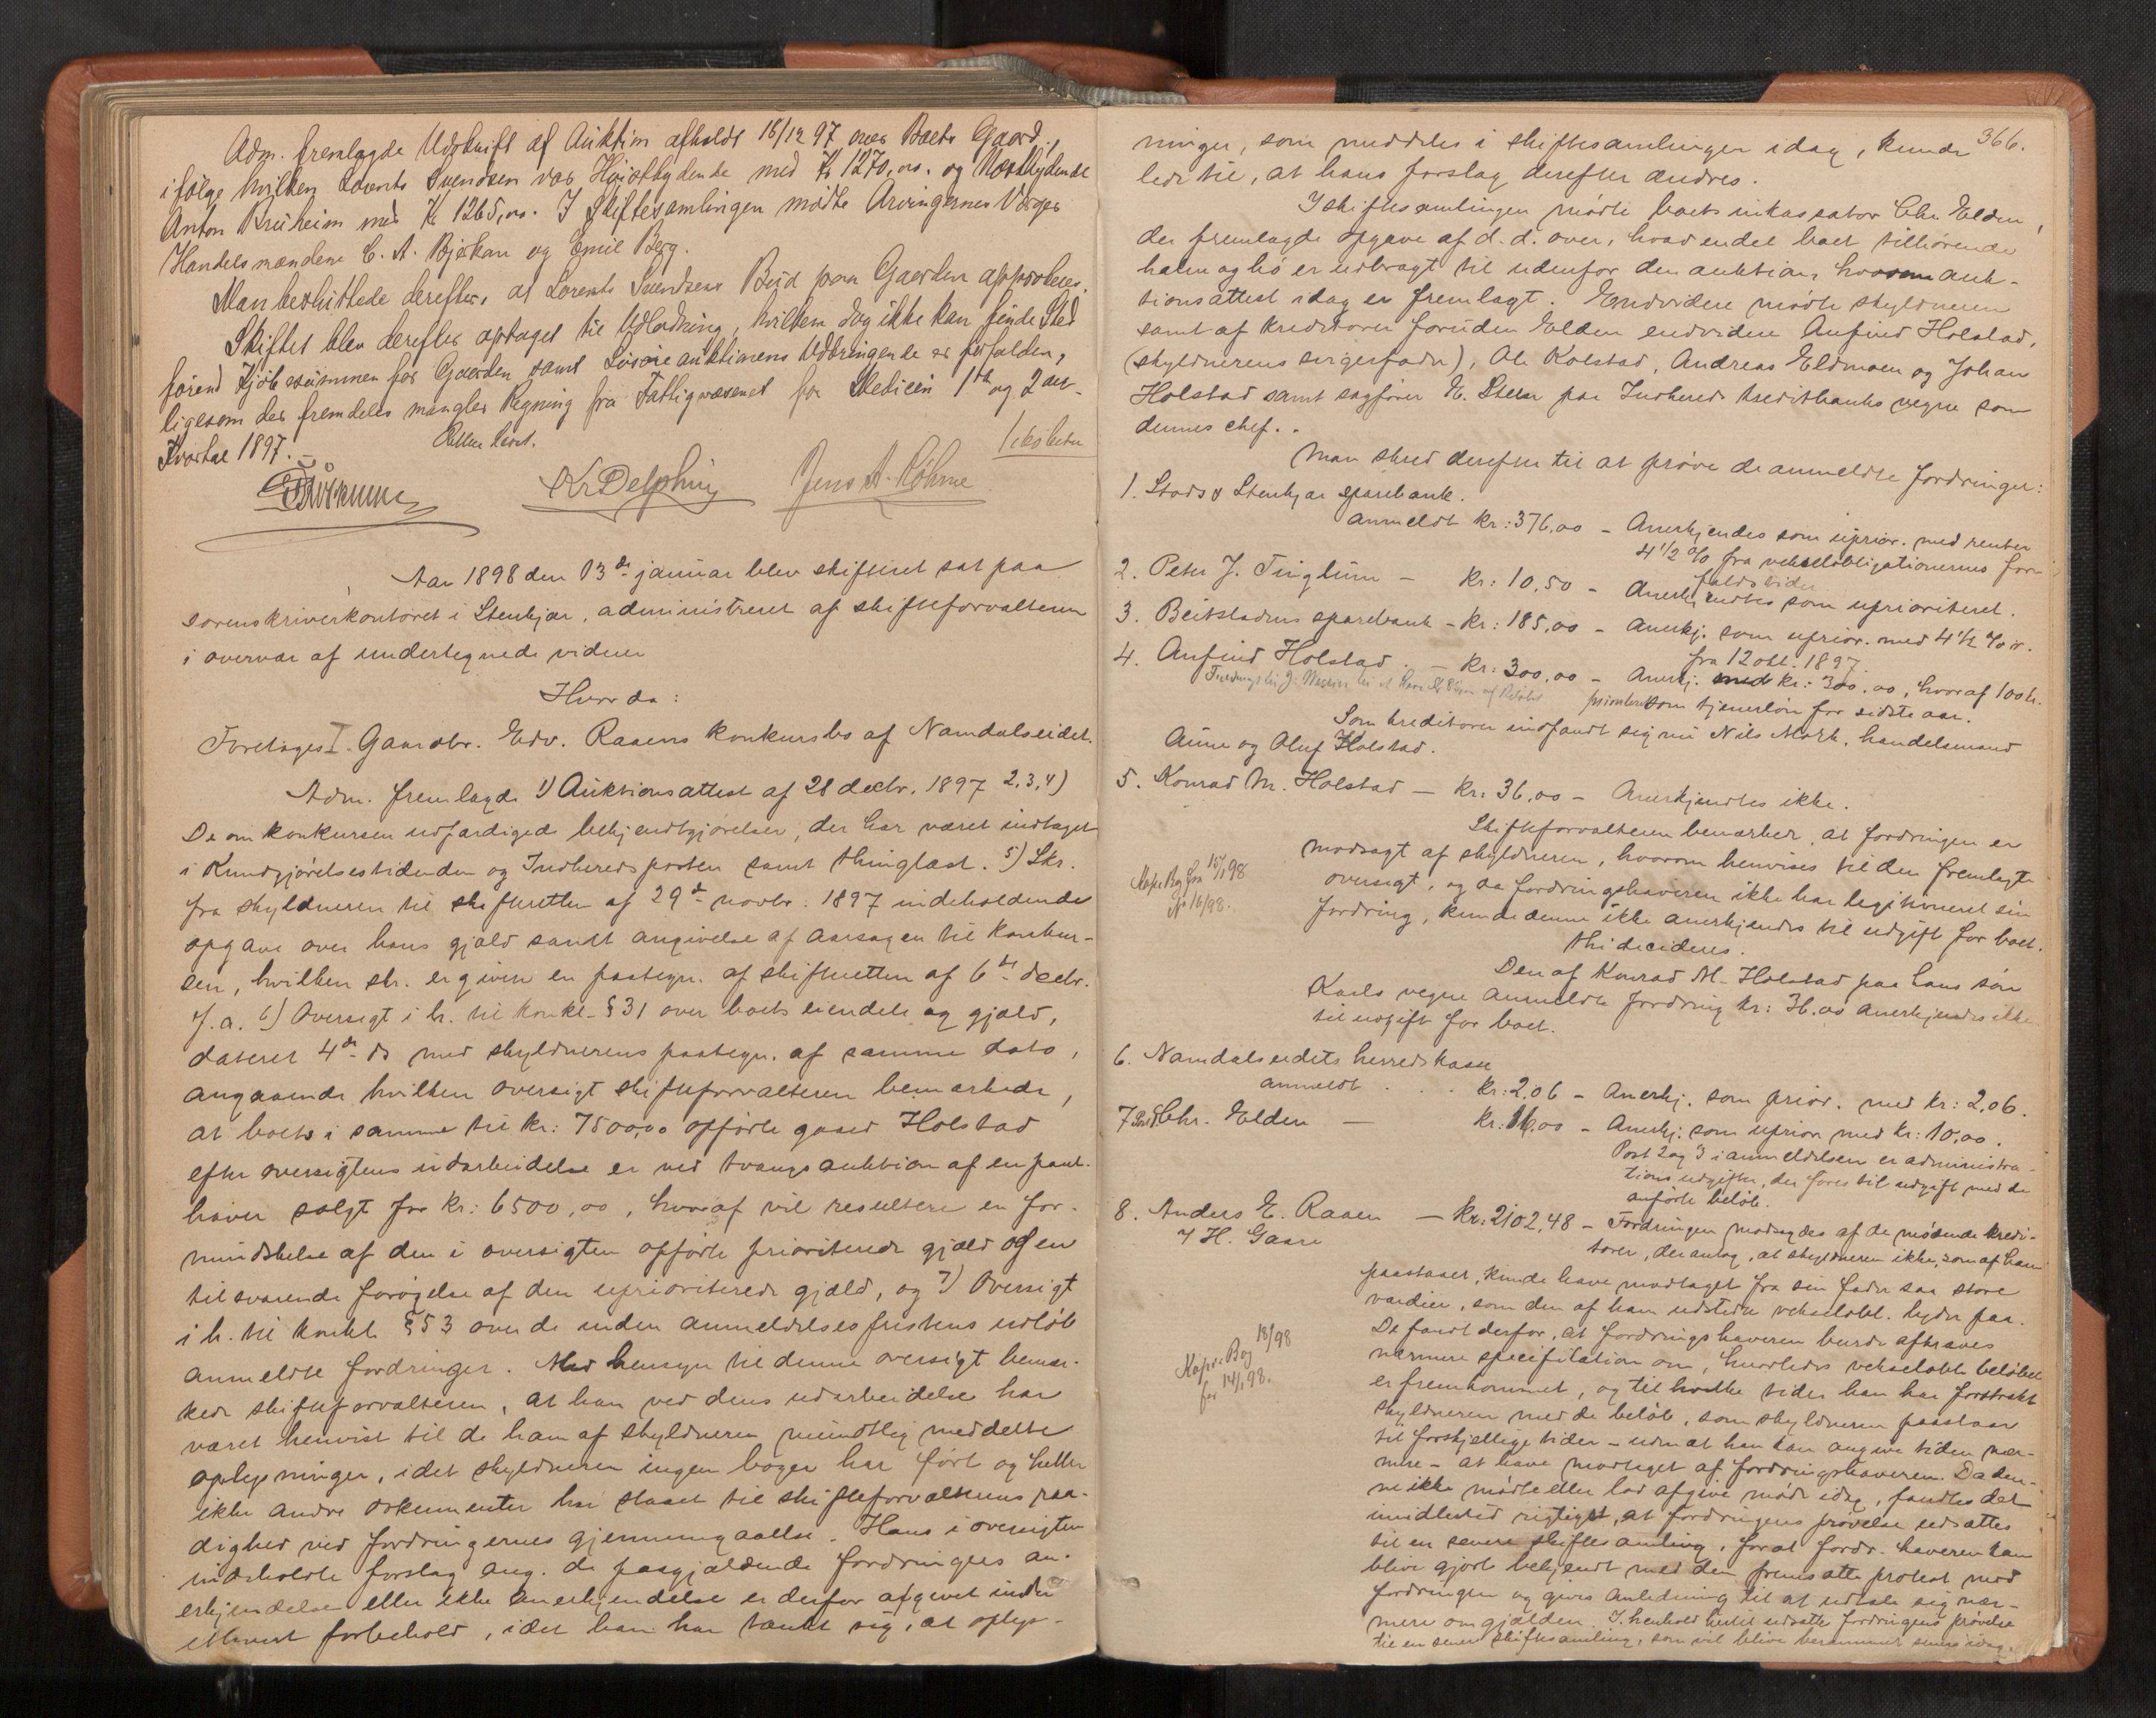 Adm. fremlagde Udskrift af Auktion afholdt 18/12 97 over Boets Gaard,
ifølge hvilken Lorents Svendsen var Høistbydende med Kr 1270,00. og Næstbydende
Anton Kruheim med Kr 1265,00. I Skiftesamlingen mødte Arvingernes Værger
Handelsmændene C. A. Bjørkan og Emil Berg.
Man besluttede derefter, at Lorents Svendsens Bud paa Gaarden approberes.
Skiftet blev derefter optaget til Udlodning, hvilken dog ikke kan finde Sted
førend Kjøbesummen for Gaarden samt Løsøreauktionens Uddringende er forfalden,
ligesom der fremdeles mangler Regning fra Fattigvæsenet for Medicin 1ste og 2det
Kvartal 1897.
Retten hævet.
KrDelphin Jens A. Röhme
Aar 1898 den 13de januar blev skifteret sat paa
sorenskriverkontoret i Stenkjær, administreret af skifteforvalteren
i overvær af undertegnede vidner
Hvor da:
Foretoges I. Gaardbr. Edv. Raaens konkursbo af Namdalseidet.
Adm. fremlagde 1) Auktionsattest af 28 decbr. 1897 2,3,4)
De om konkursen udfærdigede bekjendtgjørelser, der har været indtaget
i Kundgjørelsestidenden og Indherredsposten samt thinglæst. 5) Skr.
fra skyldneren til skifteretten af 29de novbr. 1897 indeholdende
opgave over hans gjæld samt angivelse af aarsagen til konkur-
sen, hvilken skr. er given en paategn. af skifteretten af 6te decbr.
f. a. 6) Oversigt i h. til konkl. § 31 over boets eiendele og gjæld,
dateret 4de ds med skyldnerens paategn. af samme dato,
angaaende hvilken oversigt skifteforvalteren bemærkede,
at boets i samme til kr: 7500,00 opførte gaard Holstad
efter oversigtens udarbeidelse er ved tvangsauktion af en pant-
haver solgt for kr: 6500,00, hvoraf vil resultere en for-
mindskelse af den i oversigten opførte prioriterede gjæld og en
tilsvarende forøgelse af den uprioriterede gjæld, og 7) Oversigt
i h. til konkl. § 53 over de inden anmeldelsesfristens udløb
anmeldte fordringer. Med hensyn til denne oversigt bemær-
kede skifteforvalteren, at han ved dens udarbeidelse har
været henvist til de ham af skyldneren mundtlig meddelte
oplysninger, idet skyldneren ingen bøger har ført og heller
ikke andre dokumenter har staaet til skifteforvalterens raa-
dighed ved fordringernes gjennemgaaelse. Hans i oversigten
indeholdte forslag ang. de paagjældende fordringers an-
erkjendelse eller ikke anerkjendelse er derfor afgivet under
ethvert forbehold, idet han har tænkt sig, at oplys-
366.
ninger, som meddeles i skiftesamlingen idag, kunde
lede til, at hans forslag derefter ændres.
I skiftesamlingen mødte boets inkassator Chr. Elden,
der fremlagde opgave af d. d. over, hvad endel boet tilhørende
halm og hø er udbragt til udenfor den auktion, hvorom auk-
tionsattest idag er fremlagt. Endvidere mødte skyldneren
samt af kreditorer foruden Elden endvidere Anfind Holstad,
(skyldnerens svigerfader), Ole Kolstad, Andreas Eldmoen og Johan
Holstad samt sagfører N. Steen paa Indherreds kreditbanks vegne som
dennes chef.
Man skred derefter til at prøve de anmeldte fordringer:
1. Stods & Stenkjær sparebank.
anmeldt kr: 376,00 - Anerkjendes som uprior. med renter
4 1/2 % fra vekselobligationernes for-
faldstider
2. Peter J. Tinglum - kr: 10,50 - Anerkjendtes som uprioriteret.
3. Beitstadens sparebank - kr: 185,00 - Anerkj. som uprior. med 4 1/2 % r.
fra 12 okt. 1897.
4. Anfind Holstad. - kr: 300,00 - Anerkj. med kr: 300,00, hvoraf 100 kr.
prioriteret som tjenerløn for sidste aar.
Som kreditorer indfandt sig nu Nils Mørk, handelsmand
Aune og Oluf Holstad.
5. Konrad M. Holstad - kr: 36,00 - Anerkjendtes ikke.
Skifteforvalteren bemærker, at fordringen er
modsagt af skyldneren, hvorom henvises til den fremlagte
oversigt, og da fordringshaveren ikke har legitimeret sin
fordring, kunde denne ikke anerkjendes til udgift for boet.
Kope Bog fra 15/1 98
No 16/98.
Thi decideres.
Den af Konrad M. Holstad paa hans søn
Karls vegne anmeldte fordring kr: 36,00 anerkjendes ikke
til udgift for boet.
6. Namdalseidets herredskasse
anmeldt . . . kr: 2,06 - Anerkj. som prior. med kr: 2,06.
7. Chr. Elden - kr: 16,00 - Anerkj. som uprior med kr: 10,00.
Post 2 og 3 i anmeldelsen er administra-
tionsudgifter, der føres til udgift med de
anførte beløb.
8. Anders E. Raaen - kr: 2102,48 - Fordringen modsagdes af de mødende kredi-
/ H. Gaare
torer, der antog, at skyldneren ikke, som af ham
paastaaet, kunde have modtaget fra sin fader saa store
værdier, som den af ham udstedte vekselobl. lyder paa.
De fandt derfor, at fordringshaveren burde afkræves
nærmere specifikation om, hvorledes vekselobl. beløbet
er fremkommet, og til hvilke tider han har forstrakt
Kope Bog 18/98
for 14/1 98.
skyldneren med de beløb, som skyldneren paastaar
til forskjellige tider - uden at han kan angive tiden nær-
mere - at have modtaget af fordringshaveren. Da den-
ne ikke mødte eller lod afgive møde idag, fandtes det
imidlertid rigtigst, at fordringens prøvelse udsattes
til en senere skiftesamling, forat fordr. haveren kan
blive gjort bekjendt med den fremsatte protest mod
fordringen og gives anledning til at udtale sig nær-
mere om gjælden. I henhold hertil udsattes fordringens prøvelse
til en senere skiftesamling, som vil blive berammet senere idag.